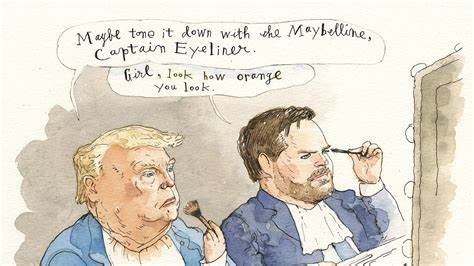 Maybe tone it down with the Maybelline,
Captain Eyeliner.
Girl, look how orange
you look.